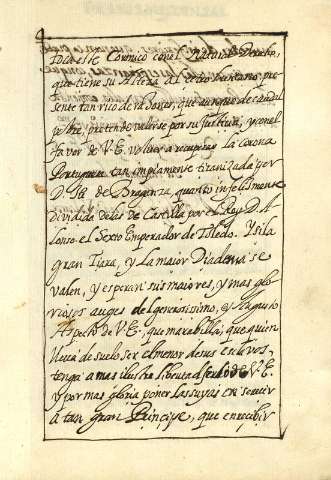 que tiene su Alteza al cetro lusitano, pre
sente tan rico de razones, que aunque de caudal
pobre, pretende valerse por su Justicia, y con el
fabor de V.E. volver a recuperar la Corona
Portuguesa tan impiamente tiranizada por
D. Jº de Braganza, quanto infelismente
dividida de las de Castilla por el Rey D. A
lonso el Sexto Emperador de Toledo. Y si la
gran Tiara, y La maior Diadema se
valen, y esperan sus maiores, y mas glo
riosos auges del generosissimo, y Augusto
Aspecto de V.E., que marabilla, que quien
lleva de suelo ser el menor de sus esclavos,
tenga a mas ilustre libertad el de V.E.
y por mas gloria poner las suyas en servir
a tan gran Principe, que en recibir